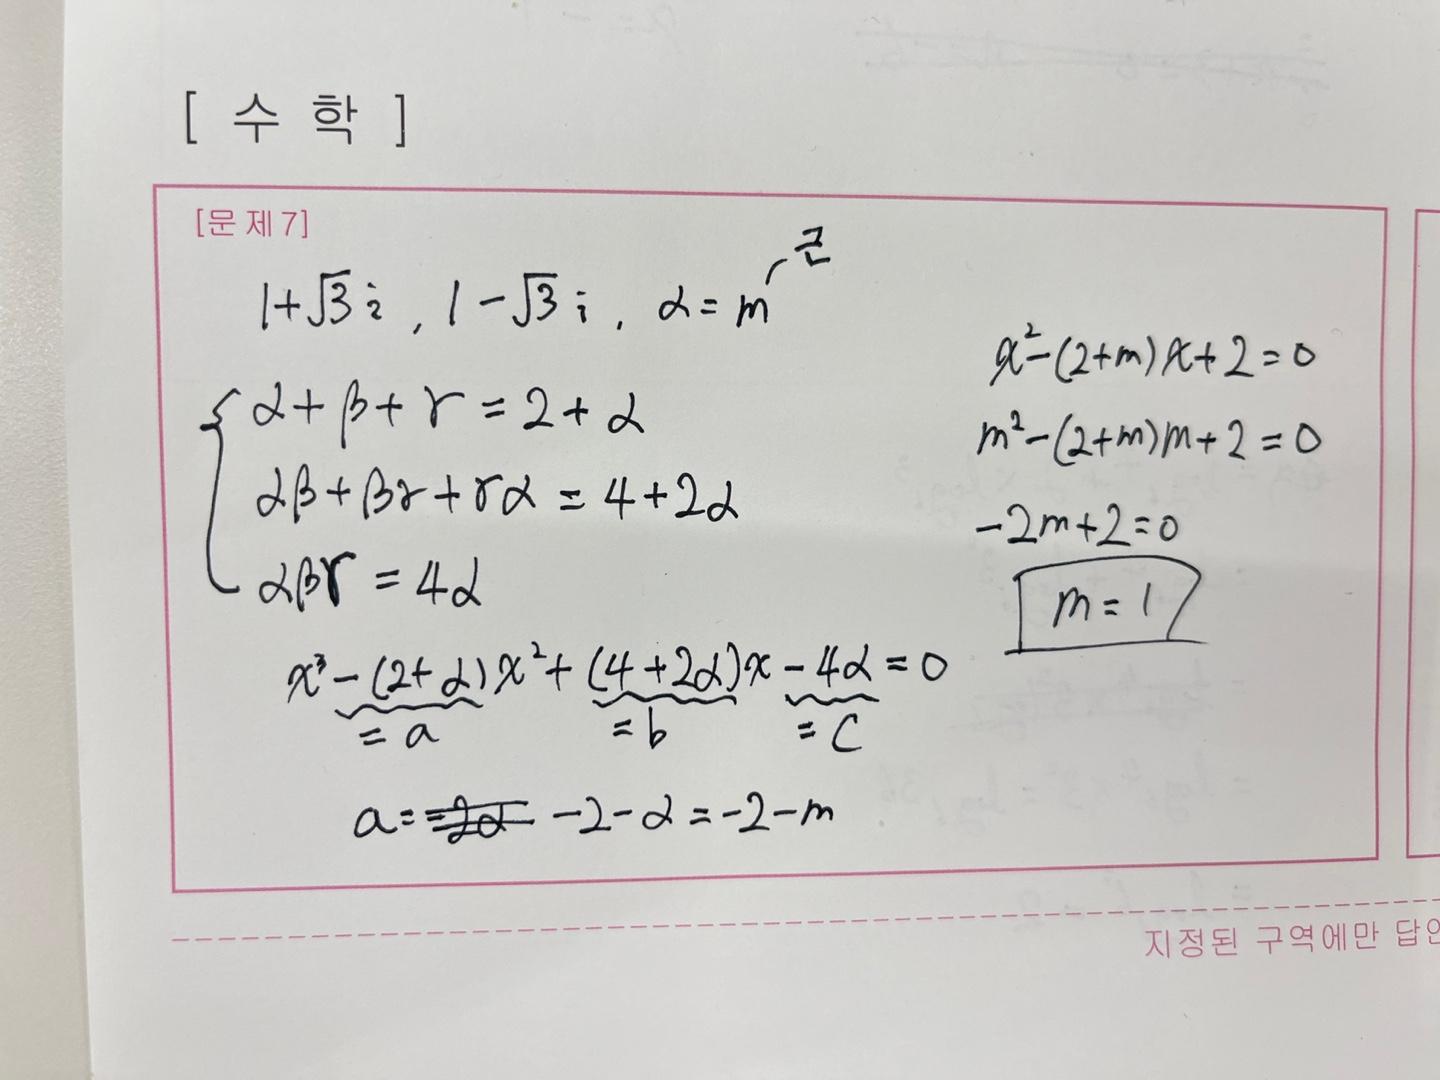 [ 수 학 ]
[문제7]
근
1+√3i , 1-√3i , α=m
{ α+β+γ=2+α
αβ+βγ+γα=4+2α
αβγ=4α
x³-(2+α)x²+(4+2α)x-4α=0
=a =b =c
a= -2-α=-2-m
x²-(2+m)x+2=0
m²-(2+m)m+2=0
-2m+2=0
m=1
지정된 구역에만